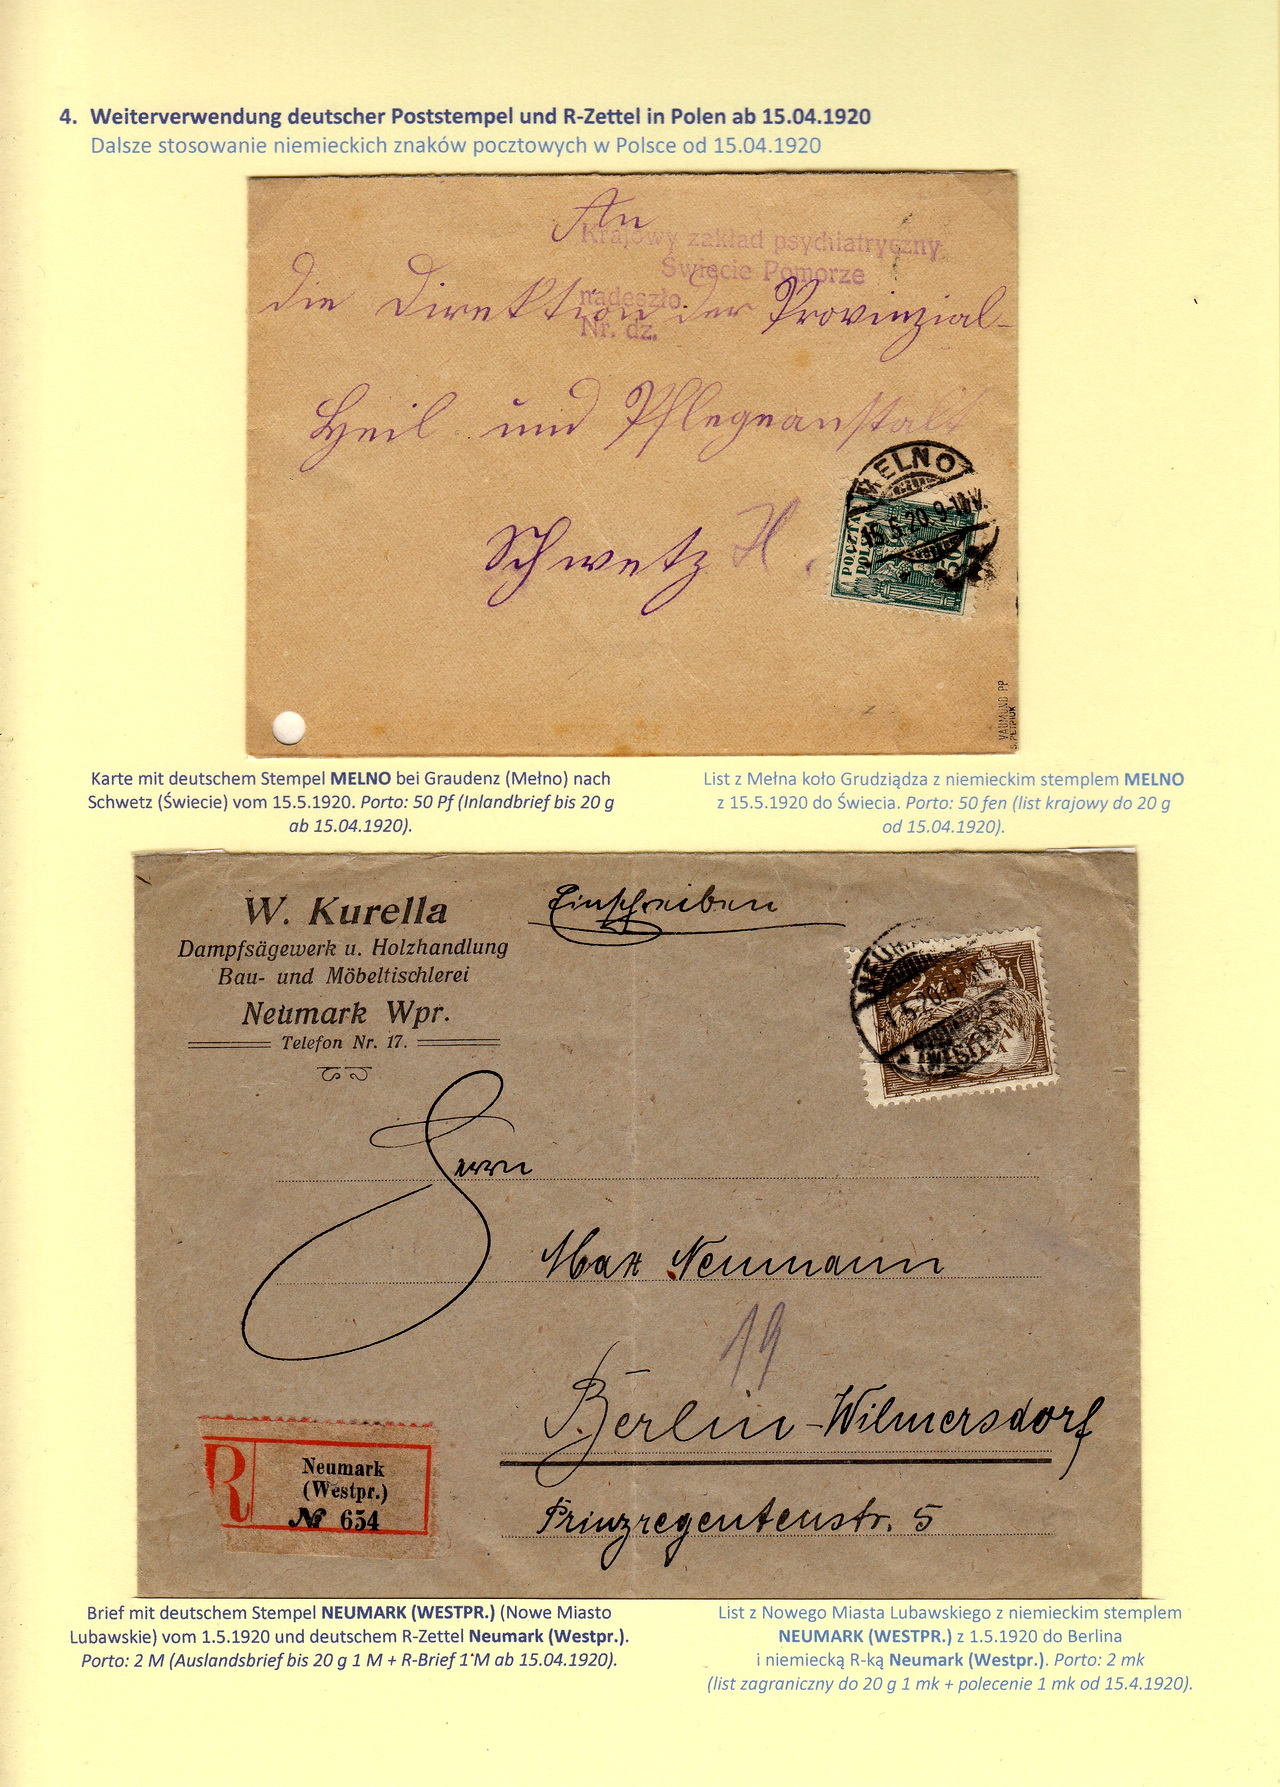 4. Weiterverwendung deutscher Poststempel und R-Zettel in Polen ab 15.04.1920
Dalsze stosowanie niemieckich znaków pocztowych w Polsce od 15.04.1920
An
Krajowy zakład psychiatryczny
Świecie Pomorze
nadeszło
Nr. dz.
die Direktion der Provinzial-
Heil und Pflegeanstalt
Schwetz
MELNO
15.5.20. 9-10V.
POCZTA
POLSKA
50
VAUMUND PP
S. PETRIUK
Karte mit deutschem Stempel MELNO bei Graudenz (Mełno) nach
Schwetz (Świecie) vom 15.5.1920. Porto: 50 Pf (Inlandbrief bis 20 g
ab 15.04.1920).
List z Mełna koło Grudziądza z niemieckim stemplem MELNO
z 15.5.1920 do Świecia. Porto: 50 fen (list krajowy do 20 g
od 15.04.1920).
W. Kurella
Dampfsägewerk u. Holzhandlung
Bau- und Möbeltischlerei
Neumark Wpr.
Telefon Nr. 17.
Einschreiben
Herrn
Max Neumann
19
Berlin-Wilmersdorf
Prinzregentenstr. 5
R
Neumark
(Westpr.)
№ 654
Brief mit deutschem Stempel NEUMARK (WESTPR.) (Nowe Miasto
Lubawskie) vom 1.5.1920 und deutschem R-Zettel Neumark (Westpr.).
Porto: 2 M (Auslandsbrief bis 20 g 1 M + R-Brief 1 M ab 15.04.1920).
List z Nowego Miasta Lubawskiego z niemieckim stemplem
NEUMARK (WESTPR.) z 1.5.1920 do Berlina
i niemiecką R-ką Neumark (Westpr.). Porto: 2 mk
(list zagraniczny do 20 g 1 mk + polecenie 1 mk od 15.4.1920).